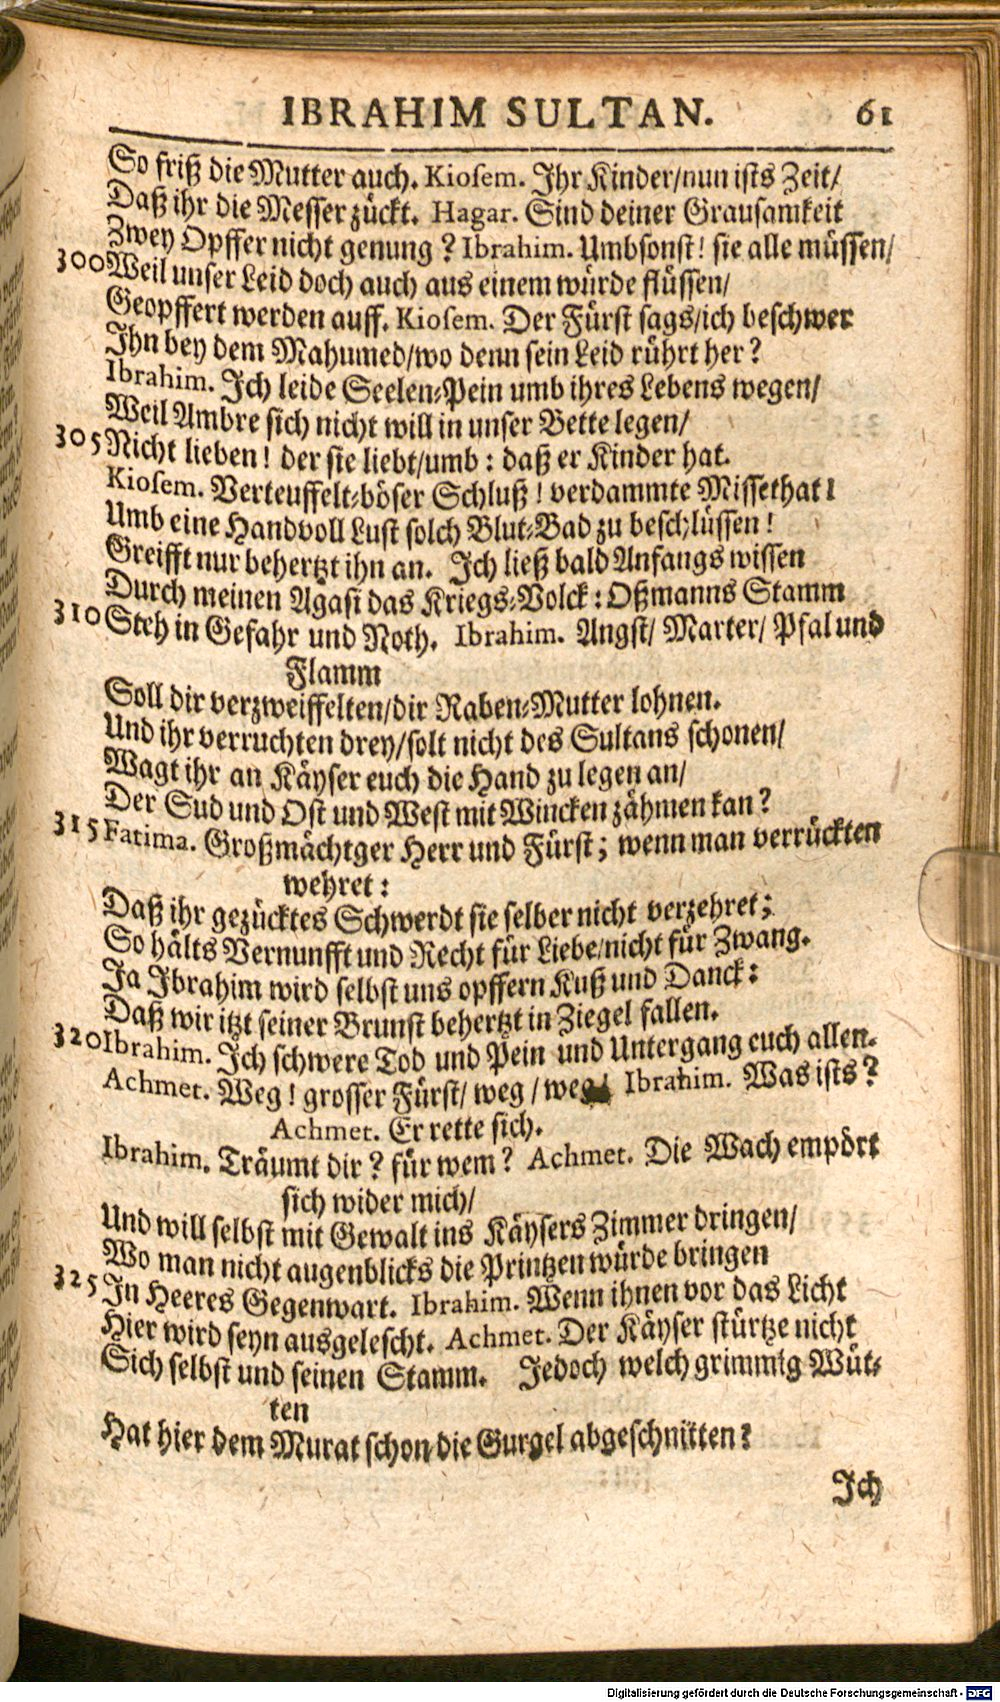 IBRAHIM SULTAN. 61
So friß die Mutter auch. Kiosem. Ihr Kinder/nun ists Zeit/
Daß ihr die Messer zückt. Hagar. Sind deiner Grausamkeit
Zwey Opffer nicht genung? Ibrahim. Umbsonst! sie alle müssen/
300 Weil unser Leid doch auch aus einem würde flüssen/
Geopffert werden auff. Kiosem. Der Fürst sags/ich beschwer
Ihn bey dem Mahumed/wo denn sein Leid rührt her?
Ibrahim. Ich leide Seelen-Pein umb ihres Lebens wegen/
Weil Ambre sich nicht will in unser Bette legen/
305 Nicht lieben! der sie liebt/umb: daß er Kinder hat.
Kiosem. Verteuffelt-böser Schluß! verdammte Missethat!
Umb eine Handvoll Lust solch Blut-Bad zu beschlüssen!
Greifft nur behertzt ihn an. Ich ließ bald Anfangs wissen
Durch meinen Agasi das Kriegs-Volck: Oßmanns Stamm
310 Steh in Gefahr und Noth. Ibrahim. Angst/ Marter/ Pfal und
Flamm
Soll dir verzweiffelten/dir Raben-Mutter lohnen.
Und ihr verruchten drey/solt nicht des Sultans schonen/
Wagt ihr an Käyser euch die Hand zu legen an/
Der Sud und Ost und West mit Wincken zähmen kan?
315 Fatima. Großmächtger Herr und Fürst; wenn man verrückten
wehret:
Daß ihr gezücktes Schwerdt sie selber nicht verzehret;
So hälts Vernunfft und Recht für Liebe/nicht für Zwang.
Ja Ibrahim wird selbst uns opffern Kuß und Danck:
Daß wir itzt seiner Brunst behertzt in Ziegel fallen.
320 Ibrahim. Ich schwere Tod und Pein und Untergang euch allen.
Achmet. Weg! grosser Fürst/ weg/ weg! Ibrahim. Was ists?
Achmet. Er rette sich.
Ibrahim. Träumt dir? für wem? Achmet. Die Wach empört
sich wider mich/
Und will selbst mit Gewalt ins Käysers Zimmer dringen/
Wo man nicht augenblicks die Printzen würde bringen
325 In Heeres Gegenwart. Ibrahim. Wenn ihnen vor das Licht
Hier wird seyn ausgelescht. Achmet. Der Käyser stürtze nicht
Sich selbst und seinen Stamm. Jedoch welch grimmig Wüt-
ten
Hat hier dem Murat schon die Gurgel abgeschnitten?
Ich
Digitalisierung gefördert durch die Deutsche Forschungsgemeinschaft - DFG